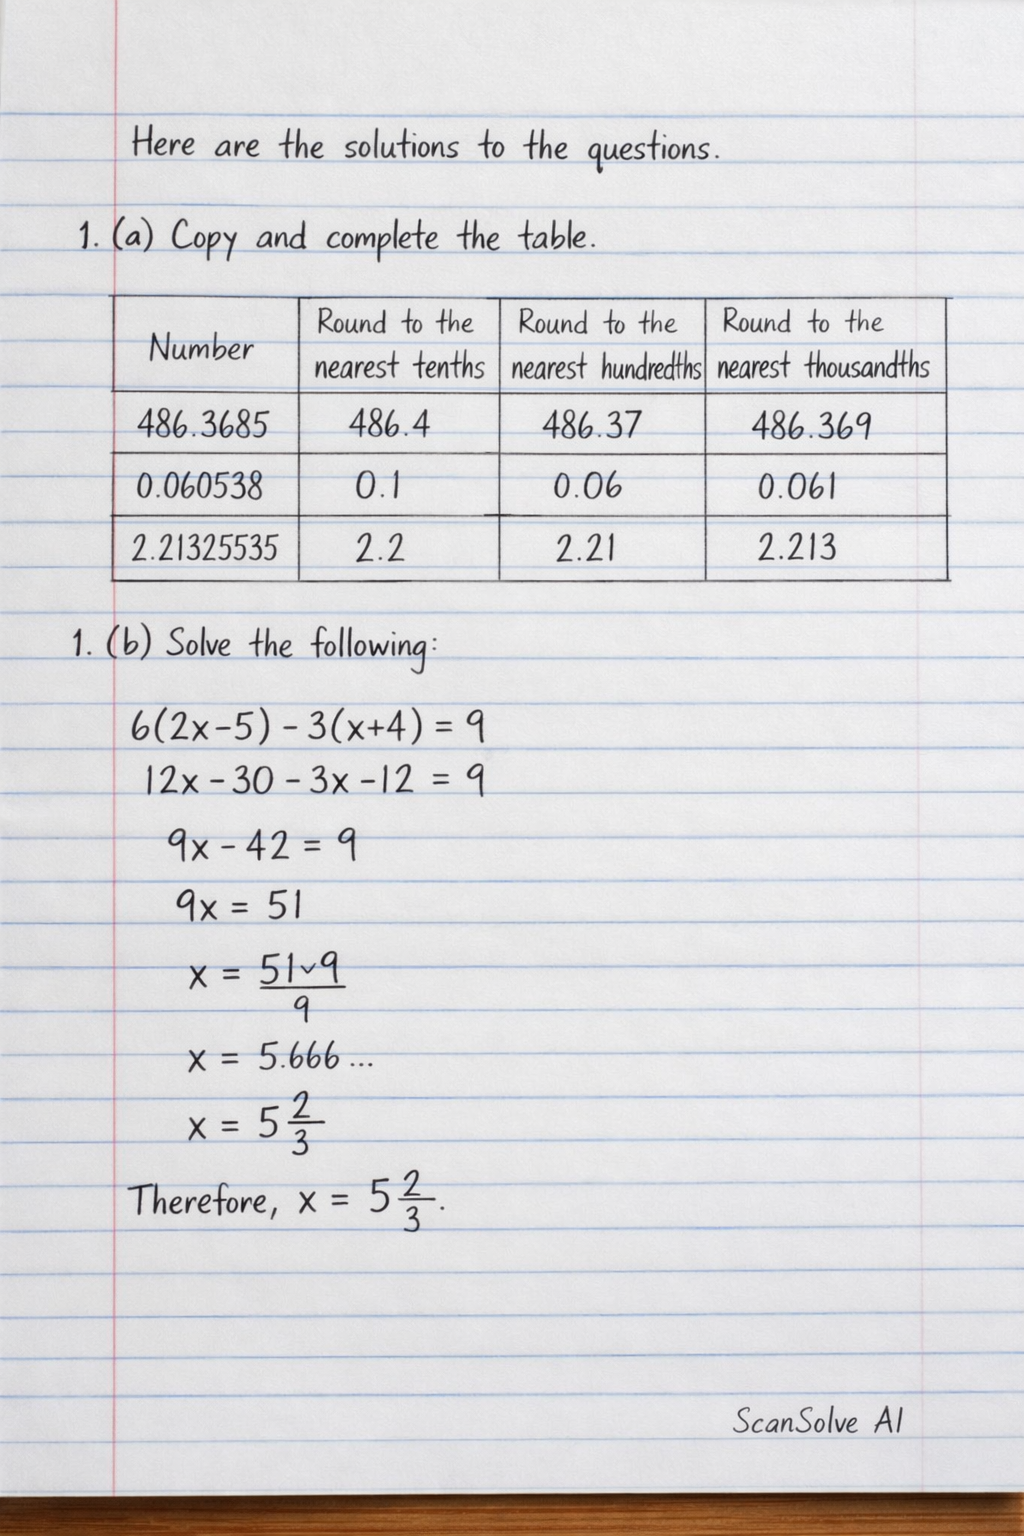 Here are the solutions to the questions.
1. (a) Copy and complete the table.
Number | Round to the nearest tenths | Round to the nearest hundredths | Round to the nearest thousandths
486.3685 | 486.4 | 486.37 | 486.369
0.060538 | 0.1 | 0.06 | 0.061
2.21325535 | 2.2 | 2.21 | 2.213
1. (b) Solve the following:
6(2x-5) - 3(x+4) = 9
12x - 30 - 3x - 12 = 9
9x - 42 = 9
9x = 51
x = 51⌄9/9
x = 5.666...
x = 5 2/3
Therefore, x = 5 2/3.
ScanSolve AI